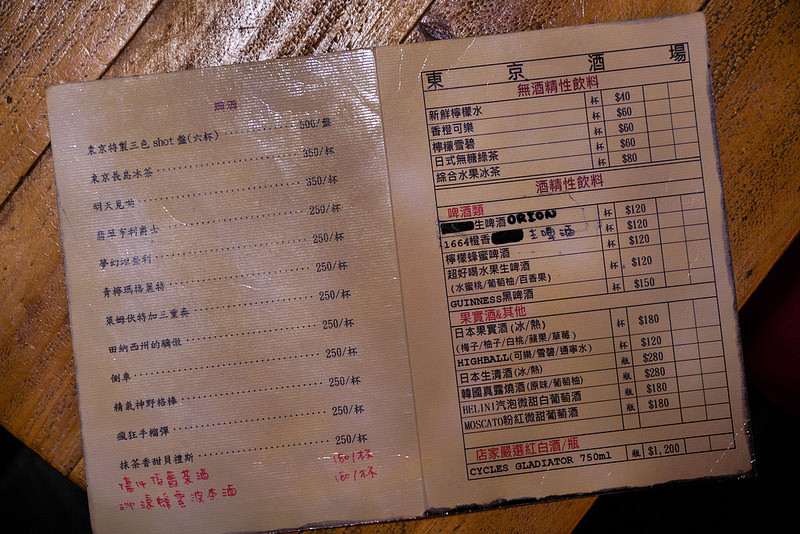 調酒
東京特製三色shot盤(六杯) 500/盤
東京長島冰茶 350/杯
明天見呦 350/杯
翡翠亨利爵士 250/杯
夢幻琴蕾利 250/杯
青檸瑪格麗特 250/杯
萊姆伏特加三重奏 250/杯
田納西州的驕傲 250/杯
側車 250/杯
精氣神野格棒 250/杯
瘋狂手榴彈 250/杯
抹茶香甜貝禮斯 250/杯
150/杯
冰滴蜂蜜波本滷 150/杯
東京酒場
無酒精性飲料
新鮮檸檬水 杯 $40
香橙可樂 杯 $60
檸檬雪碧 杯 $60
日式無糖綠茶 杯 $60
綜合水果冰茶 杯 $80
酒精性飲料
啤酒類
生啤酒ORION 杯 $120
1664橙香 生啤酒 杯 $120
檸檬蜂蜜啤酒 杯 $120
超好喝水果生啤酒 杯 $120
(水蜜桃/葡萄柚/百香果)
GUINNESS黑啤酒 杯 $150
果實酒&其他
日本果實酒(冰/熱) 杯 $180
(梅子/柚子/白桃/蘋果/草莓)
HIGHBALL(可樂/雪碧/通寧水) 杯 $120
日本生清酒(冰/熱) 瓶 $280
韓國真露燒酒(原味/葡萄柚) 瓶 $280
BELINI汽泡微甜白葡萄酒 瓶 $180
MOSCATO粉紅微甜葡萄酒 瓶 $180
店家嚴選紅白酒/瓶
CYCLES GLADIATOR 750ml 瓶 $1,200